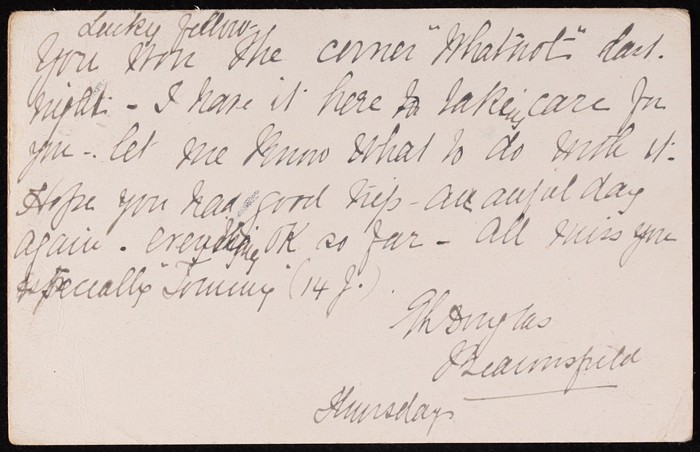 Lucky fellow -
You won the corner "Whatnot" last
night - I have it here & taking care for
you - let me know what to do with it.
Hope you had good trip - an awful day
again. everything OK so far - all miss you
especially "Tommy" (14 J.).
Douglas
Beaconsfield
Thursday